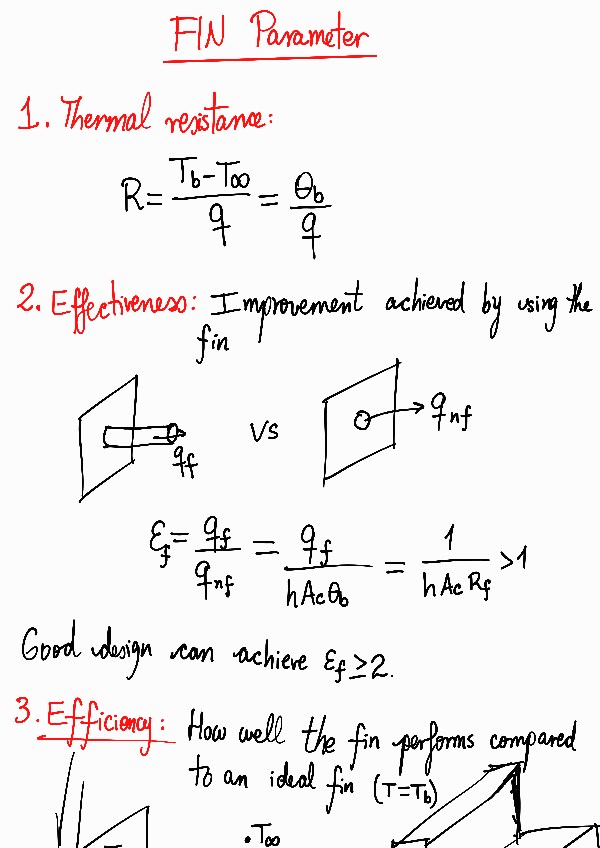 FIN Parameter
1. Thermal resistance:
R = (T_b - T_∞)/q = θ_b/q
2. Effectiveness: Improvement achieved by using the
fin
q_f vs q_nf
ε_f = q_f/q_nf = q_f/(hA_cθ_b) = 1/(hA_cR_f) > 1
Good design can achieve ε_f ≥ 2.
3. Efficiency: How well the fin performs compared
to an ideal fin (T=T_b)
T_∞